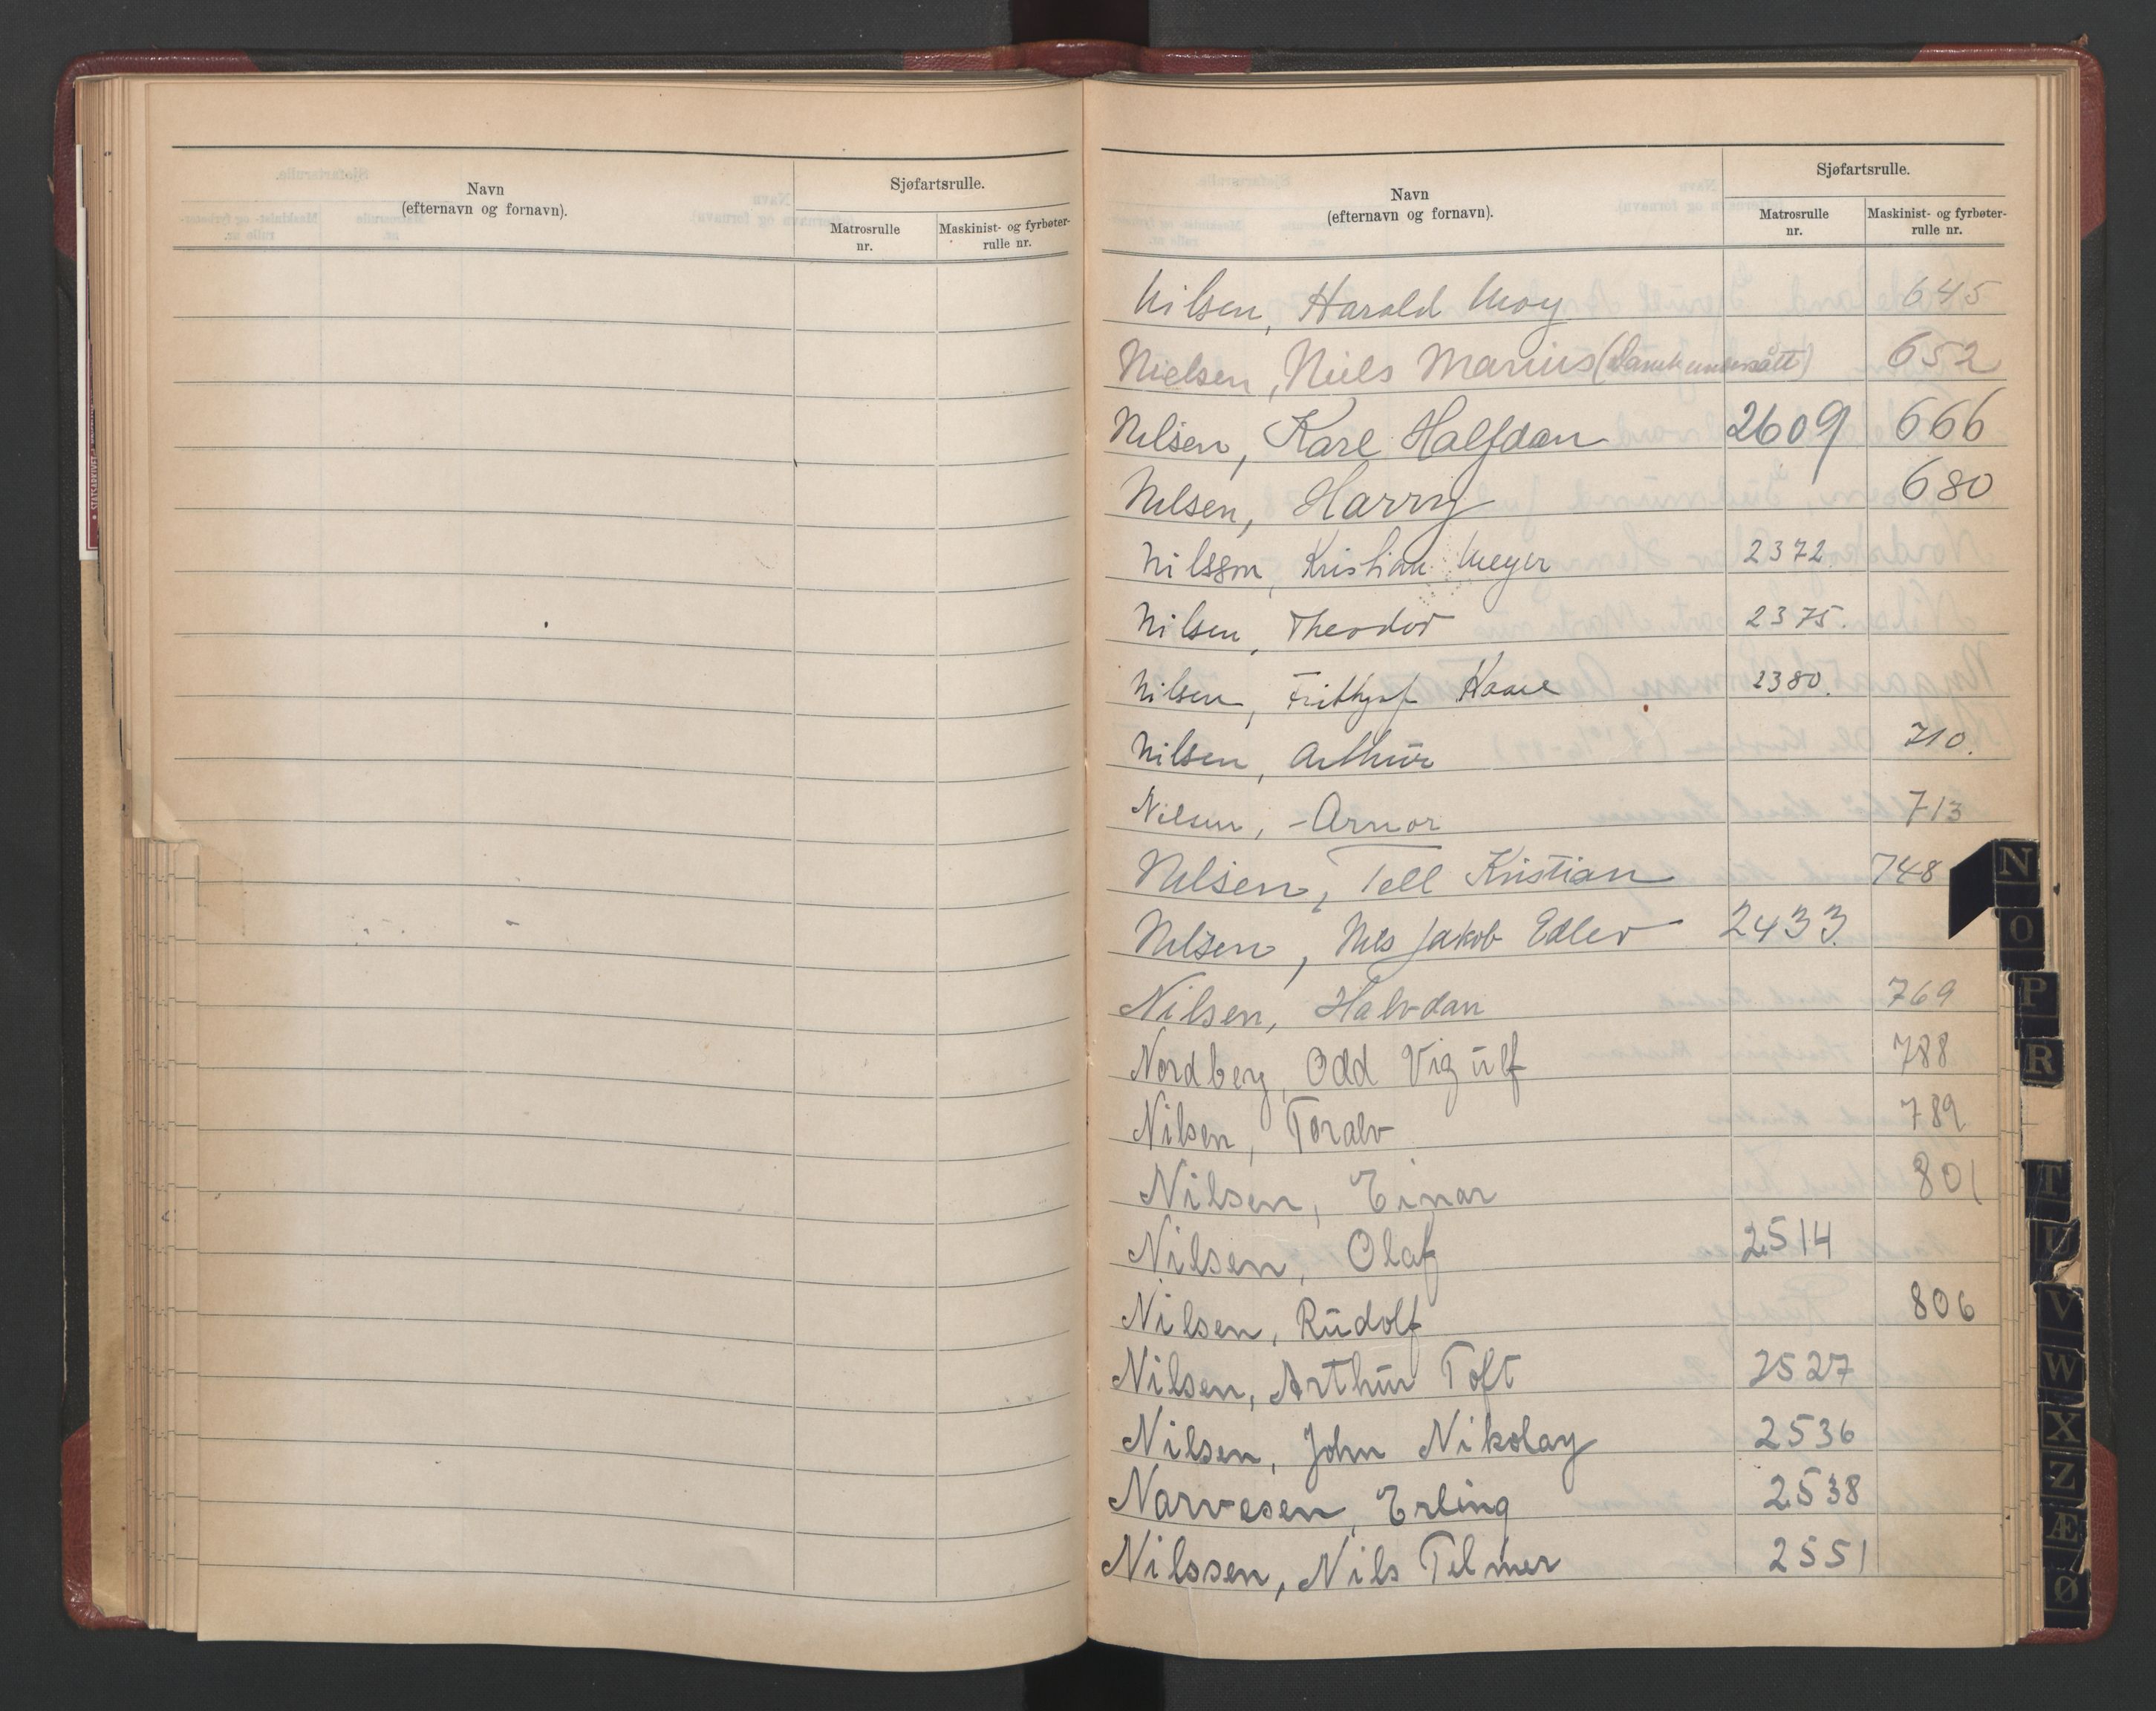 Navn
(efternavn og fornavn).
Sjøfartsrulle.
Matrosrulle
nr.
Maskinist- og fyrbøter-
rulle nr.
Navn
(efternavn og fornavn).
Sjøfartsrulle.
Matrosrulle
nr.
Maskinist- og fyrbøter-
rulle nr.
Nilsen, Harald Moy 645
Nielsen, Niels Marius (Dansk undersått) 652
Nilsen, Kare Halfdan 2609 666
Nilsen, Harry 680
Nilsson, Kristian Meyer 2372.
Nilsen, Theodor 2375.
Nilsen, Frithjof Kaare 2380.
Nilsen, Arthur 710.
Nilsen, -Arnor 713
Nilsen, Tell Kristian 748
Nilsen, Nils Jakob Edlev 2433.
Nilsen, Halvdan 769
Nordberg, Odd Vigulf 788
Nilsen, Toralv 789
Nilsen, Einar 801
Nilsen, Olaf 2514
Nilsen, Rudolf 806
Nilsen, Arthur Toft 2527
Nilsen, John Nikolay 2536
Narvesen, Erling 2538
Nilssen, Nils Telmer 2551
N
O
P
R
T
U
V
W
X
Z
Æ
Ø